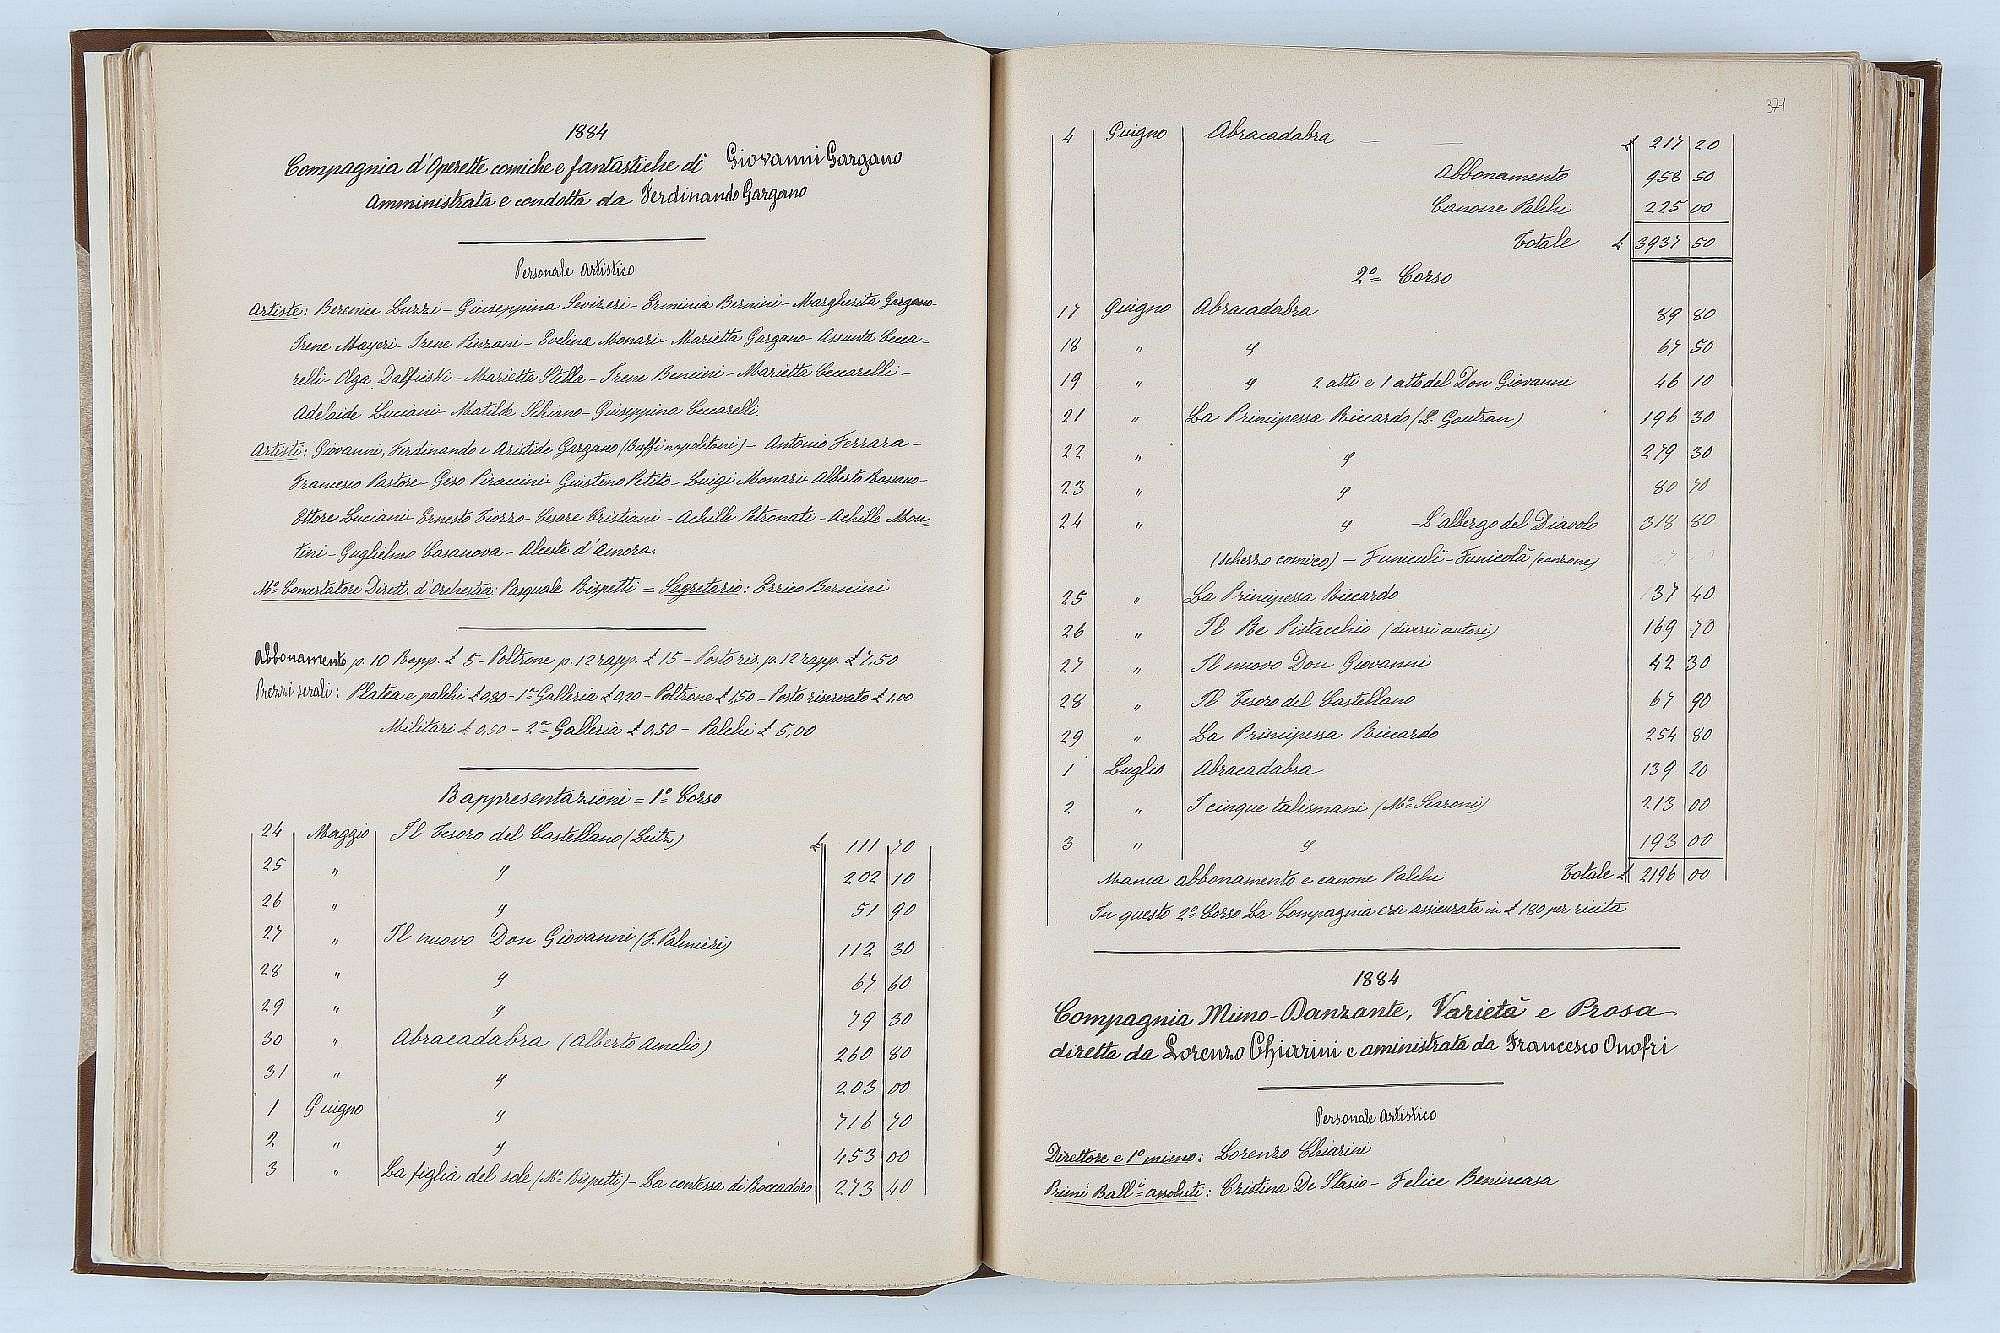 1884
Compagnia d'Operette comiche e fantastiche di Giovanni Gargano
Amministrata e condotta da Ferdinando Gargano
Personale Artistico
Artiste: Berenice Luzzi - Giuseppina Sevizeri - Erminia Bernini - Margherita Gargano-
Irene Mayeri - Irene Pinzani - Evelina Monari - Marietta Gargano - Assunta Cecca-
relli - Olga Dalfreski - Marietta Stella - Irene Bencini - Marietta Ceccarelli -
Adelaide Luciani - Matilde Schiano - Giuseppina Ceccarelli.
Artisti: Giovanni, Ferdinando e Aristide Gargano (Buffi napoletani) - Antonio Ferrara -
Francesco Pastore - Geso Piraccini Giustino Petito - Luigi Monari Alberto Bassano-
Ettore Luciani - Ernesto Fiozzo - Cesare Cristiani - Achille Petronati - Achille Mon=
tini - Guglielmo Casanova - Alceste d'Amora.
Mo. Concertatore Dirett. d'Orchestra: Pasquale Rispetti = Segretario: Errico Bernini
Abbonamento p. 10 Rapp. £ 5 - Poltrone p. 12 rapp. £ 15 - Posto ris. p. 12 rapp. £ 7,50
Prezzi serali: Platea e palchi £ 0,80 - 1a Galleria £ 0,70 - Poltrone £ 1,50 - Posto riservato £ 1,00
Militari £ 0,50 - 2a Galleria £ 0,50 - Palchi £ 5,00
Rappresentazioni = 1o Corso
24 Maggio Il Tesoro del Castellano (Seitz) £ 111 70
25 " " 202 10
26 " " 51 90
27 " Il nuovo Don Giovanni (F. Palmieri) 112 30
28 " " 67 60
29 " " 79 30
30 " Abracadabra (Alberto Amelio) 260 80
31 " " 203 00
1 Giugno " 716 70
2 " " 453 00
3 " La figlia del sole (Mo Rispetti) - La contessa di Boccadoro 273 40
371
4 Giugno Abracadabra — — £ 217 20
Abbonamento 958 50
Canone Palchi 225 00
Totale £ 3937 50
2o= Corso
17 Giugno Abracadabra 89 80
18 " " 67 50
19 " " 2 atti e 1 atto del Don Giovanni 46 10
21 " La Principessa Riccardo (L. Gautran) 196 30
22 " " 279 30
23 " " 80 70
24 " " - L'albergo del Diavolo 318 80
(scherzo comico) - Funiculì - Funicolà (canzone) " "
25 " La Principessa Riccardo 37 40
26 " Il Re Pistacchio (diversi autori) 169 70
27 " Il nuovo Don Giovanni 42 30
28 " Il Tesoro del Castellano 67 90
29 " La Principessa Riccardo 254 80
1 Luglio Abracadabra 139 20
2 " I cinque talismani (Mo Scaroni) 213 00
3 " " 193 00
Manca abbonamento e canone Palchi Totale £ 2196 00
In questo 2o Corso La Compagnia era assicurata in £ 180 per recita
1884
Compagnia Mimo-Danzante, Varietà e Prosa
diretta da Lorenzo Chiarini e aministrata da Francesco Onofri
Personale Artistico
Direttore e 1o mimo: Lorenzo Chiarini
Primi Ball.i assoluti: Cristina De Stasio - Felice Benincasa